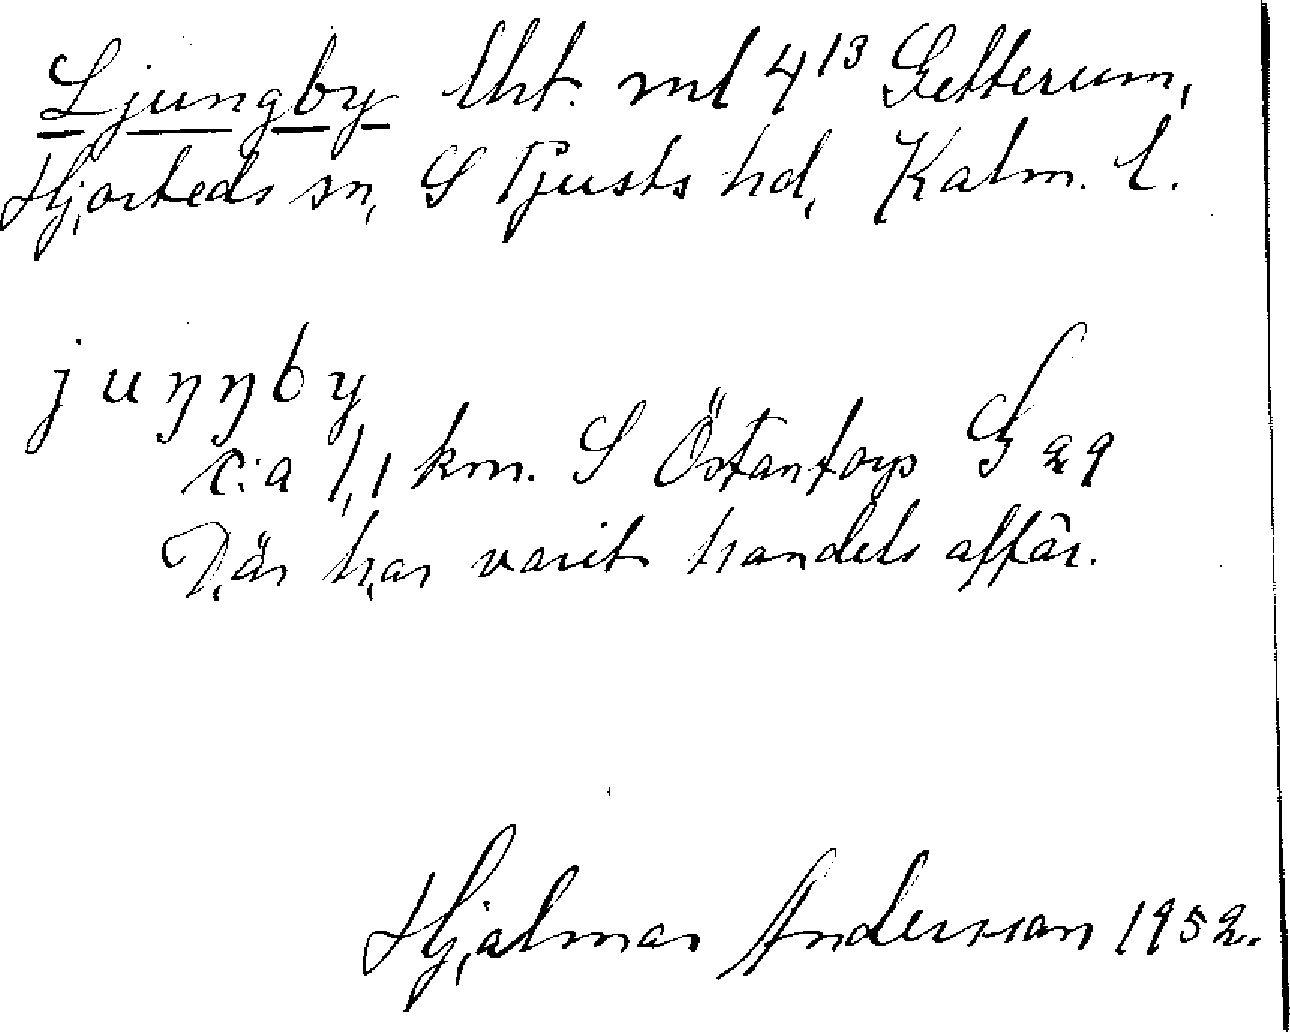 Ljungby lht. ml 4¹³ Getterum,
Hjorteds sn, S Tjusts hd, Kalm. l.
juŋŋby
c:a 1,1 km. S Östantorps G 29
Där har varit handels affär.
Hjalmar Andersson 1952.